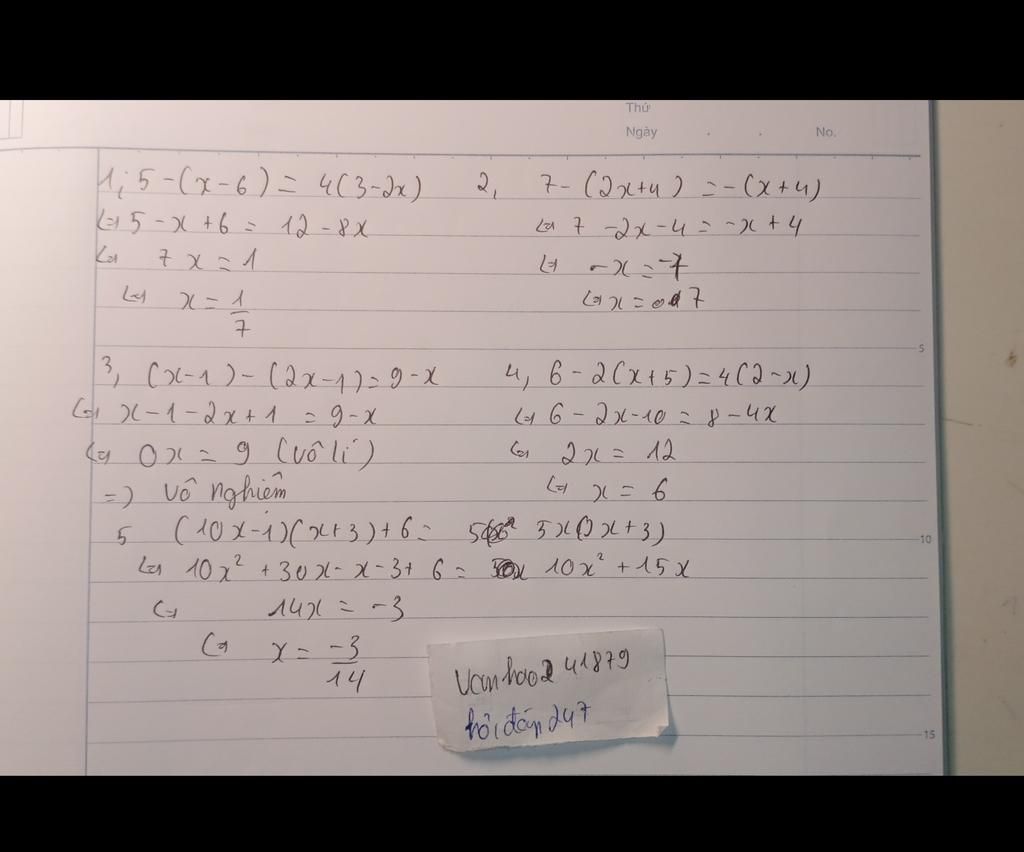 Thứ
Ngày . . No.
1, 5 - (x - 6) = 4(3 - 2x)
⇔ 5 - x + 6 = 12 - 8x
⇔ 7x = 1
⇔ x = 1/7
2, 7 - (2x + 4) = -(x + 4)
⇔ 7 - 2x - 4 = -x + 4
⇔ -x = -7
⇔ x = 7
3, (x - 1) - (2x - 1) = 9 - x
⇔ x - 1 - 2x + 1 = 9 - x
⇔ 0x = 9 (vô lí)
=) vô nghiệm
4, 6 - 2(x + 5) = 4(2 - x)
⇔ 6 - 2x - 10 = 8 - 4x
⇔ 2x = 12
⇔ x = 6
5 (10x - 1)(x + 3) + 6 = 5x( x + 3)
⇔ 10x² + 30x - x - 3 + 6 = 10x² + 15x
⇔ 14x = -3
⇔ x = -3/14
vanhao241879
hỏi đáp 247
5
10
15